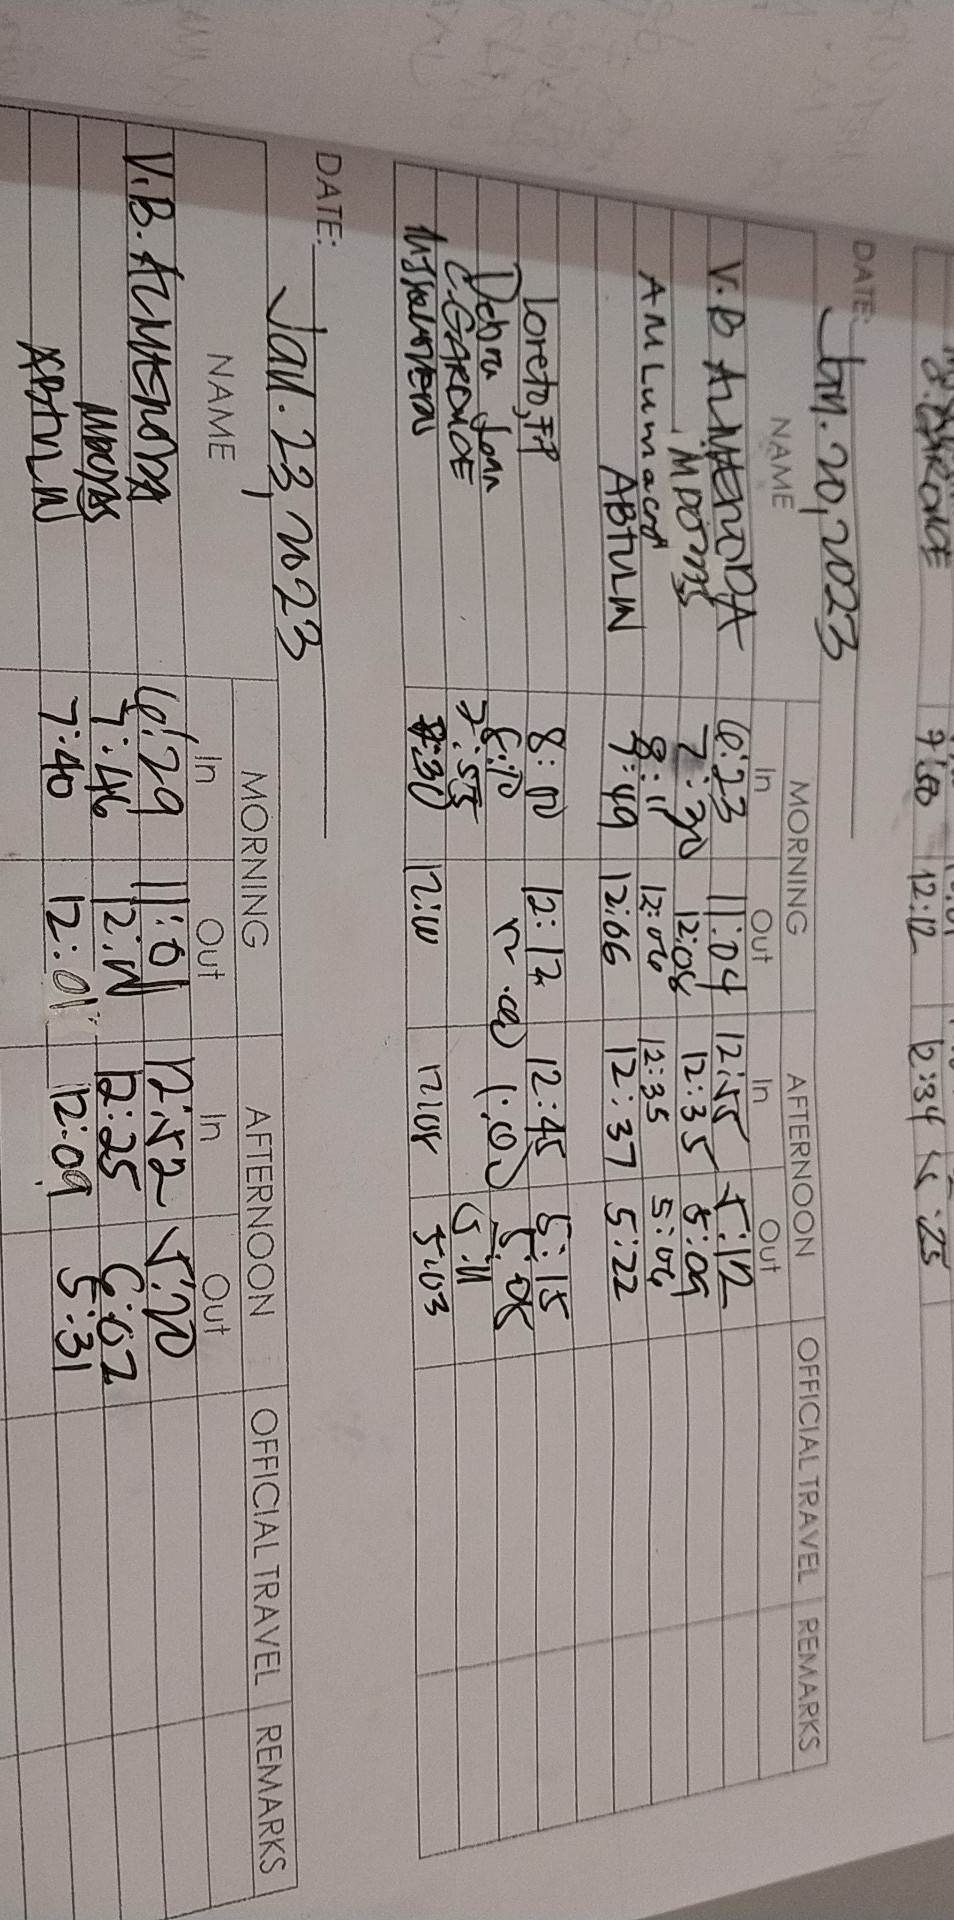 C. GARDUCE 7:50 12:12 12:34 25
DATE: Jan. 20, 2023
NAME MORNING AFTERNOON OFFICIAL TRAVEL REMARKS
In Out In Out
V. B ALMENODA 6:23 11:04 12:55 5:12
7:30 12:08 12:35 5:09
AM Lumacad 8:11 12:06 12:35 5:06
ABTULIN 7:49 12:06 12:37 5:22
Loreto, FP 8:00 12:12 12:45 5:15
Debra Joan 8:10 12:00 1:00 5:05
C. GARDUCE 7:55 5:11
8:30 12:00 12:08 5:03
DATE: Jan. 23, 2023
NAME MORNING AFTERNOON OFFICIAL TRAVEL REMARKS
In Out In Out
V. B. ALMENODA 6:29 11:01 12:52 5:20
7:46 12:25 6:02
ABTULIN 7:40 12:01 12:09 5:31